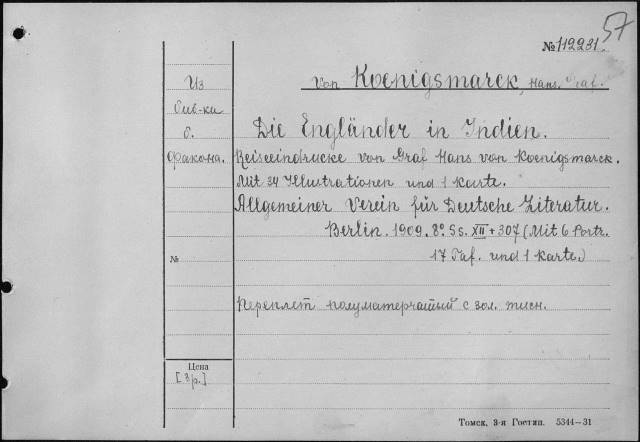 57
№ 112231.
von Koenigsmarck, Hans. Graf.
Из
биб-ки
б.
Факона.
Die Engländer in Indien.
Reiseeindrücke von Graf Hans von Koenigsmarck.
Mit 34 Illustrationen und 1 Karte.
Allgemeiner Verein für Deutsche Literatur.
Berlin. 1909. 8º. Ss. XII + 307 (Mit 6 Portr.
17 Taf. und 1 Karte.)
№
Переплет полуматерчатый с зол. тисн.
Цена
[3р.]
Томск, 3-я Гостип. 5344—31